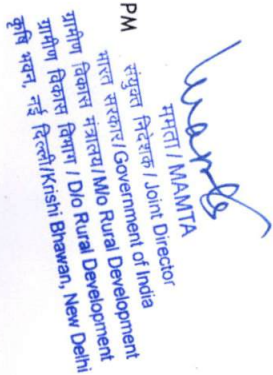 PM
Mamta
ममता / MAMTA
संयुक्त निदेशक / Joint Director
भारत सरकार/Government of India
ग्रामीण विकास मंत्रालय/M/o Rural Development
ग्रामीण विकास विभाग / D/o Rural Development
कृषि भवन, नई दिल्ली/Krishi Bhawan, New Delhi